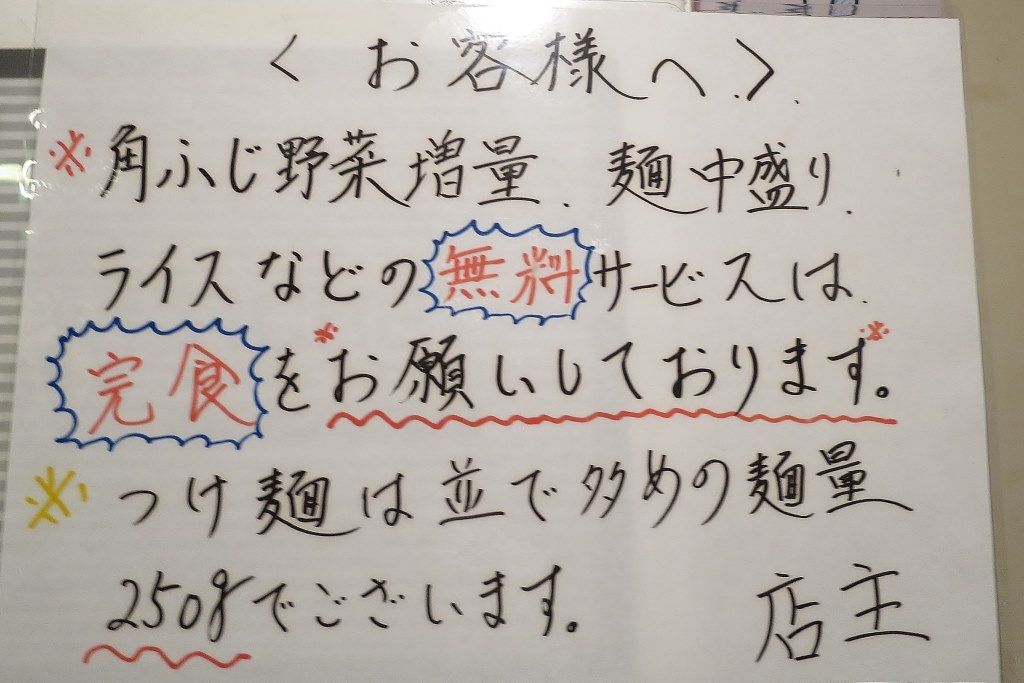 〈お客様へ.〉.
※角ふじ野菜増量、麺中盛り、
ライスなどの無料サービスは、
完食を※お願いしております。※
※つけ麺は並で多めの麺量
250gでございます。
店主